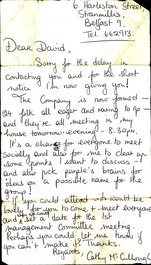 6 Harleston Street,
Stranmillis,
Belfast 9.
Tel. 662913.
Dear David,
Sorry for the delay in
contacting you and for the short
notice I'm now giving you!
The Company is now formed -
24 folk all eager and raring to go -
and they're all meeting in my
house tomorrow evening - 8.30pm.
It's a chance for everyone to meet
socially and also for me to clear up
some points I want to discuss -
and also pick people's brains for
ideas on a possible name for the
group!
If you could attend it would be
lovely for you to come & meet everyone
and set a date for the 1st
management committee meeting.
Perhaps you could let me know if
you can't make it? Thanks.
Regards,
Cathy McCullough